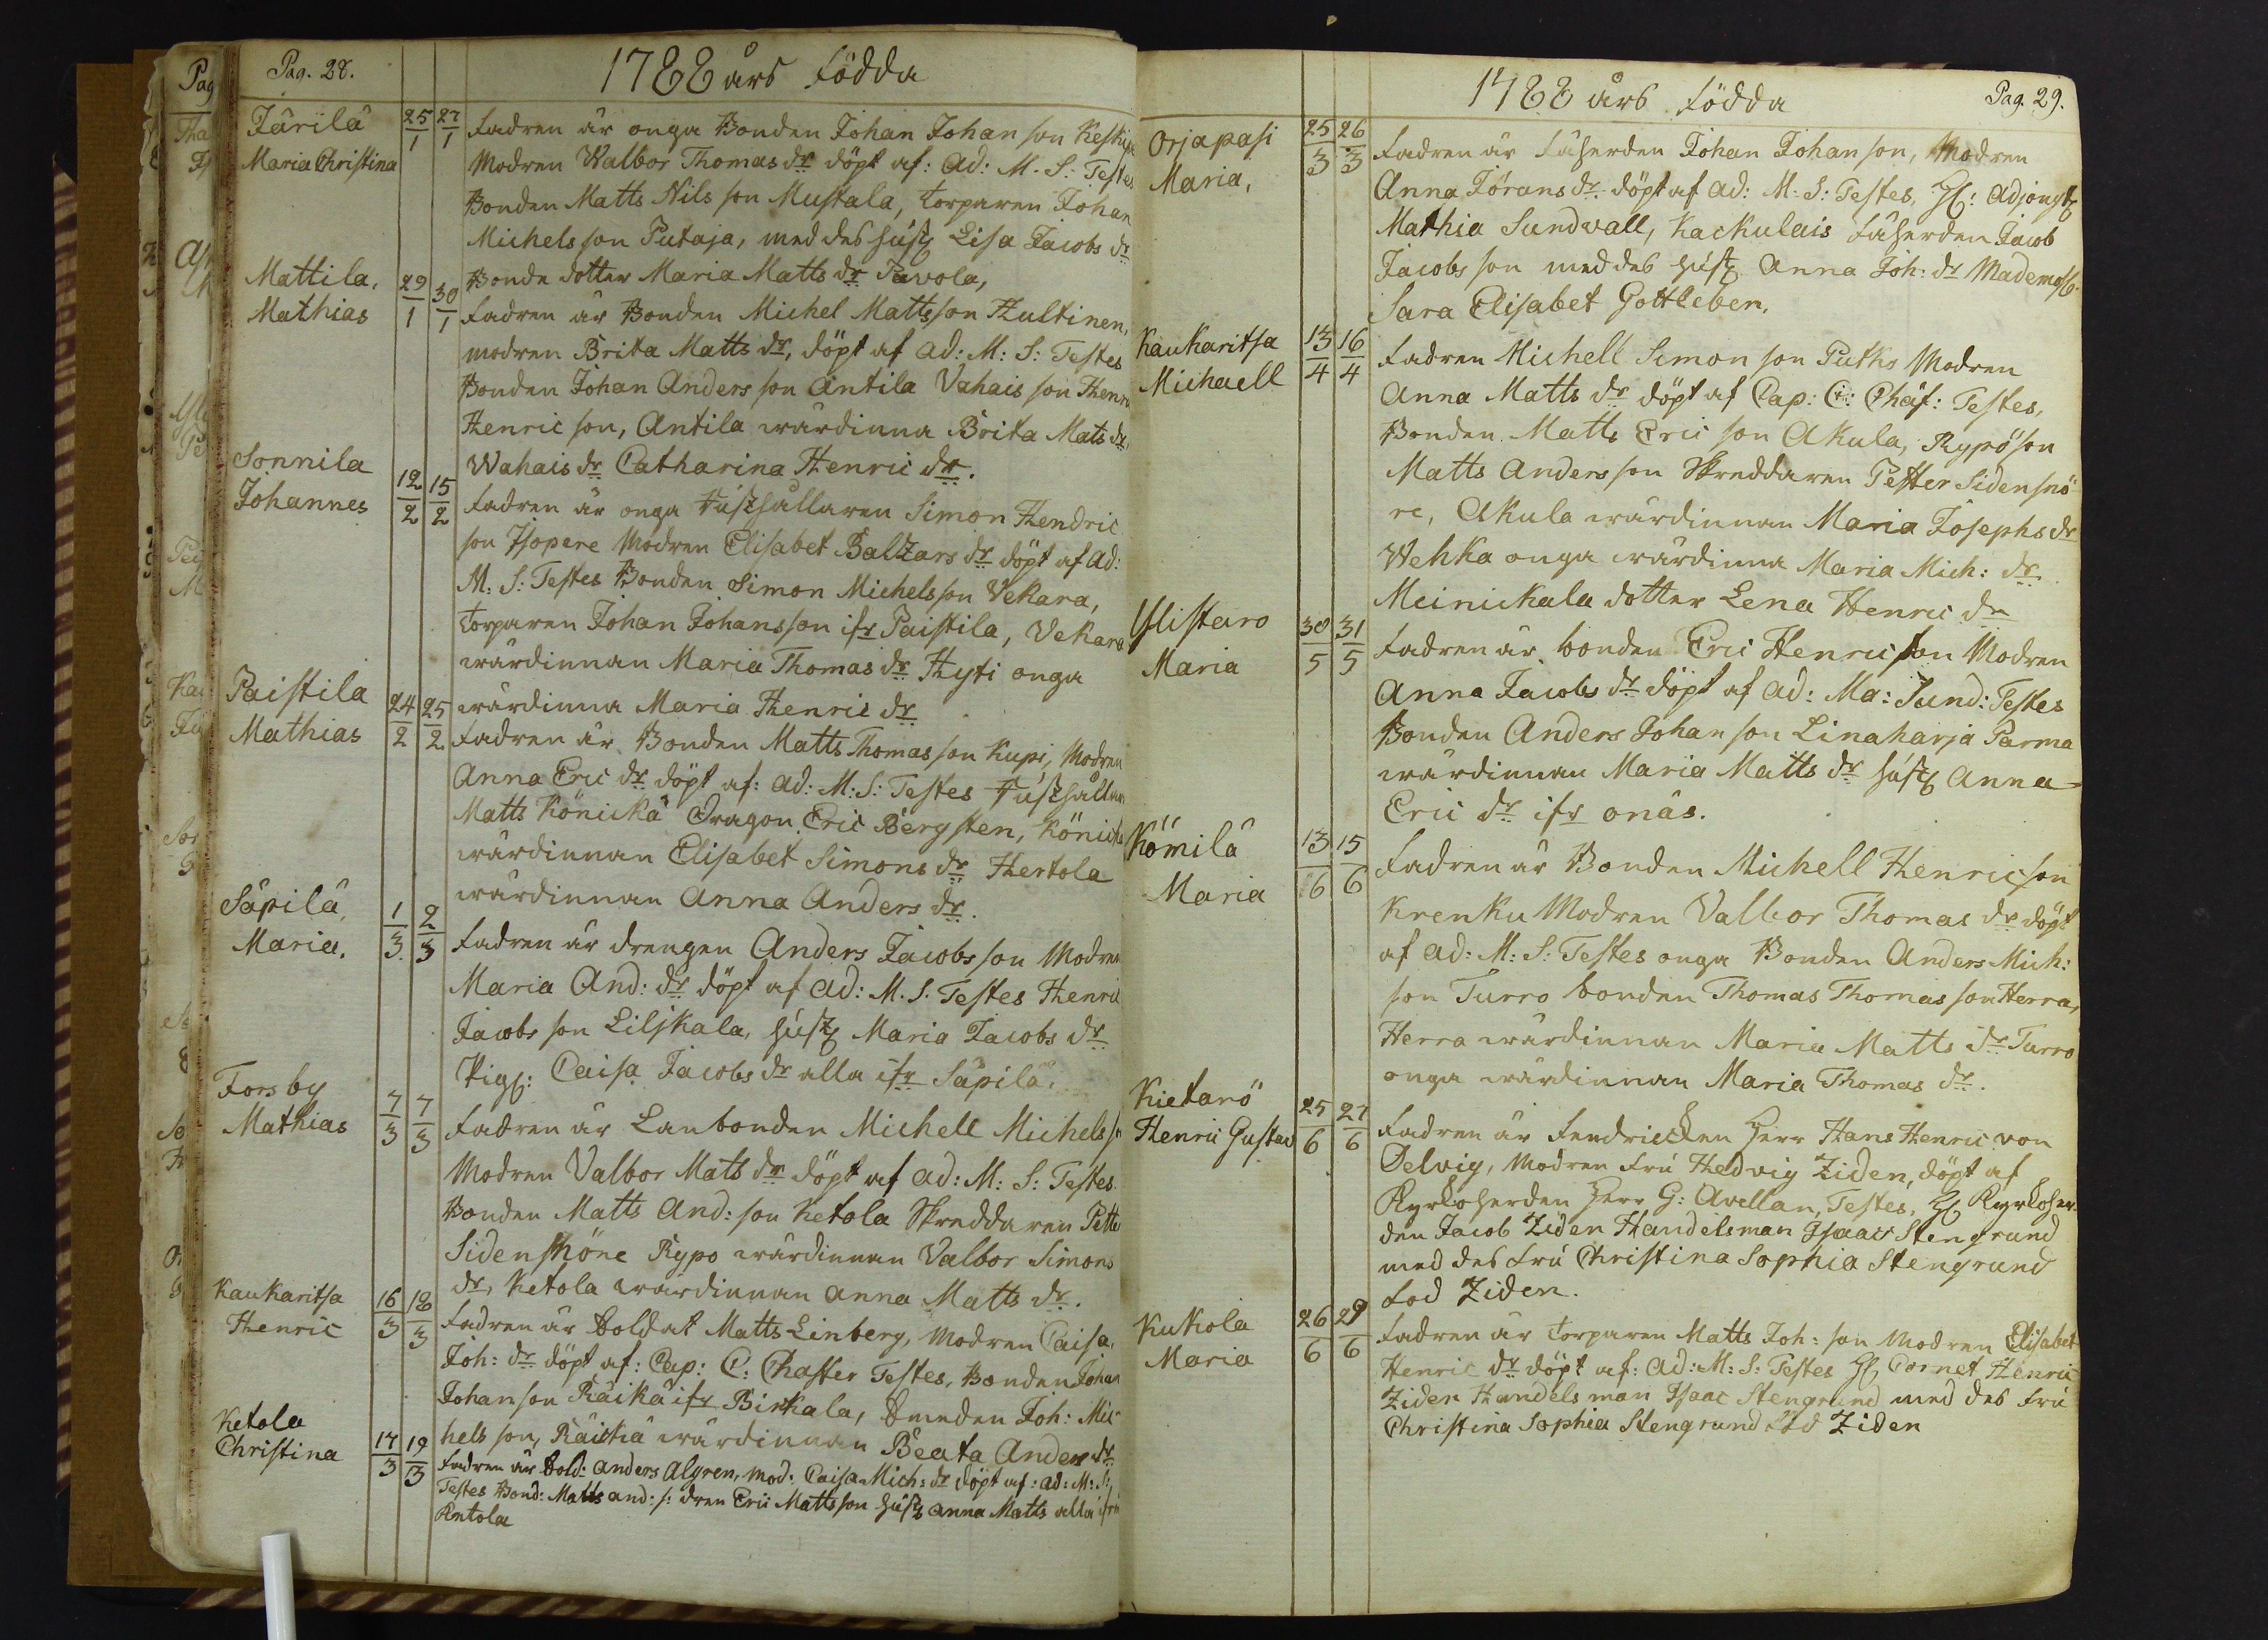 Pag. 28.
1788 års födda
Järilä
Maria Christina
25/1 27/1
Fadren är onga Bonden Johan Johan son
Modren Walbor Thomas dr döpt af: ad: M. S: Testes
Bonden Matts Nils son Mustala, torparen Johan
Michels son Putaja, med des hust Lisa Jacobs dr
Bonde dotter Maria Matts dr Tavola,
Mattila,
Mathias
29/1 30/1
Fadren är Bonden Michel Mattsson Hultinen,
modren Brita Matts dr, döpt af ad: M: S: Testes
Bonden Johan Anders son Antila Vahais son Henric
Henric son, Antila wärdinna Brita Mats dr
Wahais dr Catharina Henric dr.
Sonnila
Johannes
12/2 15/2
Fadren är onga Rusthållaren Simon Hendric
son Isopere Modren Elisabet Baltzars dr döpt af ad:
M: S: Testes Bonden Simon Michelsson Vekara,
torparen Johan Johansson ifr Paistila, Vekara
wärdinnan Maria Thomas dr Hyti onga
wärdinna Maria Henric dr
Paistila
Mathias
24/2 25/2
Fadren är Bonden Matts Thomas son Kupi, Modren
Anna Eric dr döpt af: ad: M: S: Testes Rusthållaren
Matts Könickä Dragon Eric Bergsten, Könickä
wärdinnan Elisabet Simons dr Hertola
wärdinnan Anna Anders dr.
Säpilä,
Maria.
1/3 2/3
Fadren är drengen Anders Jacobs son Modren
Maria And: dr döpt af ad: M. S. Testes Henric
Jacobs son Liljkala, hust Maria Jacobs dr
Pig: Caisa Jacobs dr alla ifr Säpilä.
Forsby
Mathias
7/3 7/3
Fadren är Lanbonden Michell Michels sn
Modren Valbor Mats dr döpt af ad: M: S: Testes.
Bonden Matts And: son Ketola Skreddaren Petter
Sidensnöne Rypo wärdinnan Valbor Simons
dr, Ketola wärdinnan Anna Matts dr.
Kaukaritsa
Henric
16/3 18/3
Fadren är Soldat Matts Linberg, Modren Caisa
Joh: dr döpt af: Cap: C: Chafter Testes, Bonden Johan
Johan son Räikä ifr Birkala, Smeden Joh: Mic
hels son, Räickä wärdinnan Beata Anders dr
Ketola
Christina
17/3 19/3
Fadren är Sold: Anders Algren, Mod. Caisa Mich: dr döpt af: ad: M: S:
Testes Bond: Matts and: s: dren Eric Matts son hust Anna Matts alla ifrån
Ketola
1788 års födda
Pag. 29.
Orjapasi
Maria,
25/3 26/3
Fadren är Fäherden Johan Johan son, Modren
Anna Jörans dr döpt af ad: M: S: Testes, H: Adjongt
Mathia Sundwall, Kackulais Fäherden Jacob
Jacobs son med des hust Anna Joh: dr Mademoss:
Sara Elisabet Gottleben.
Kaukaritsa
Michaell
13/4 16/4
Fadren Michell Simon son Putko Modren
Anna Matts dr döpt af Cap: C: Chäf: Testes,
Bonden Matts Eric son Akula, Rypö son
Matts Anders son Skreddaren Petter Sidensnö
re, Akula wärdinnan Maria Josephs dr
Wehka onga wärdinna Maria Mich: dr
Meinickala dotter Lena Henric dr
Ylistaro
Maria
30/5 31/5
Fadren är bonden Eric Henric son Modren
Anna Jacobs dr döpt af ad: Ma: Sund: Testes
Bonden Anders Johan son Linaharja Parma
wärdinnan Maria Matts dr hust Anna
Eric dr ifr onäs.
Kömilä
Maria
13/6 15/6
Fadren är Bonden Michell Henricson
Krenku Modren Valbor Thomas dr döpt
af ad: M: S: Testes onga Bonden Anders Mich:
son Turro bonden Thomas Thomas son Herra,
Herra wärdinnan Maria Matts dr Turro
onga wärdinnan Maria Thomas dr.
Kietarö
Henric Gustav
25/6 27/6
Fadren är Fendricken Herr Hans Henric von
Delvig, Modren Fru Hedvig Ziden, döpt af
Kyrkoherden Herr G: Avellan, Testes, H Kyrkoher
den Jacob Ziden Handelsman Isaac Stengrund
med des Fru Christina Sophia Stengrund
Fod Ziden.
Kukola
Maria
26/6 29/6
Fadren är torparen Matts Joh: son Modren Elisabet
Henric dr döpt af: ad: M: S: Testes H Cornet Henric
Ziden Handelsman Isaac Stengrund med des Fru
Christina Sophia Stengrund Fod Ziden